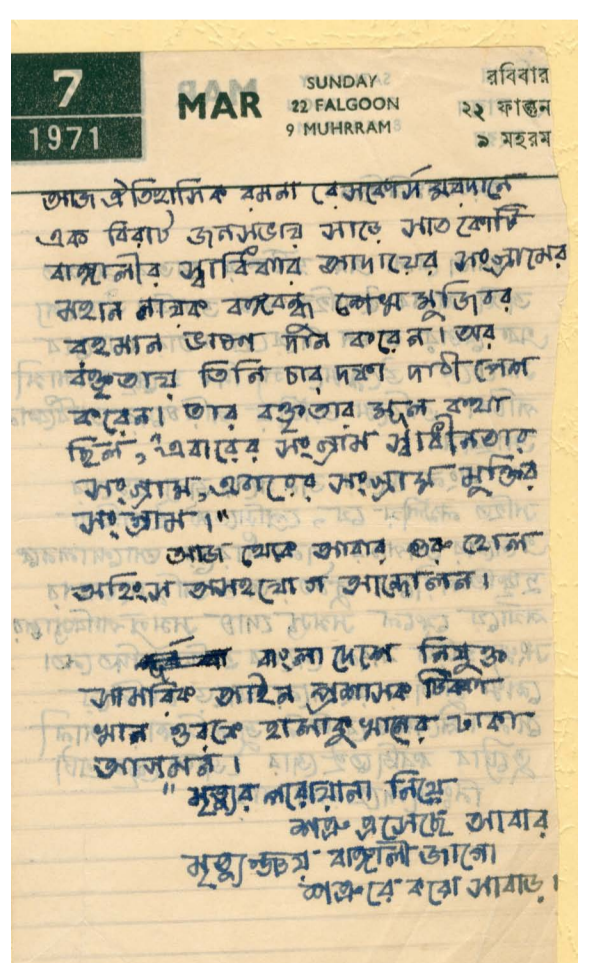 7
1971
MAR
SUNDAY
22 FALGOON
9 MUHRRAM
রবিবার
২২ ফাল্গুন
৯ মহরম
আজ ঐতিহাসিক রমনা রেসকোর্স ময়দানে
এক বিরাট জনসভায় সাড়ে সাত কোটি
বাঙ্গালীর স্বাধিকার আদায়ের সংগ্রামের
মহান নায়ক বঙ্গবন্ধু শেখ মুজিবর
রহমান ভাষণ দান করেন। তার
বক্তৃতায় তিনি চার দফা দাবী পেশ
করেন। তার বক্তৃতার মূল কথা
ছিল, "এবারের সংগ্রাম স্বাধীনতার
সংগ্রাম, এবারের সংগ্রাম মুক্তির
সংগ্রাম।"
আজ থেকে আবার শুরু হোল
অহিংস অসহযোগ আন্দোলন।
বাংলা দেশে নিযুক্ত
সামরিক আইন প্রশাসক টিক্কা
খান ওরফে হালাকু খানের ঢাকায়
আগমন।
"মৃত্যুর পরোয়ানা নিয়ে
শত্রু এসেছে আবার
মৃত্যুঞ্জয় বাঙ্গালী জাগো
শত্রুরে করো সাবাড়।